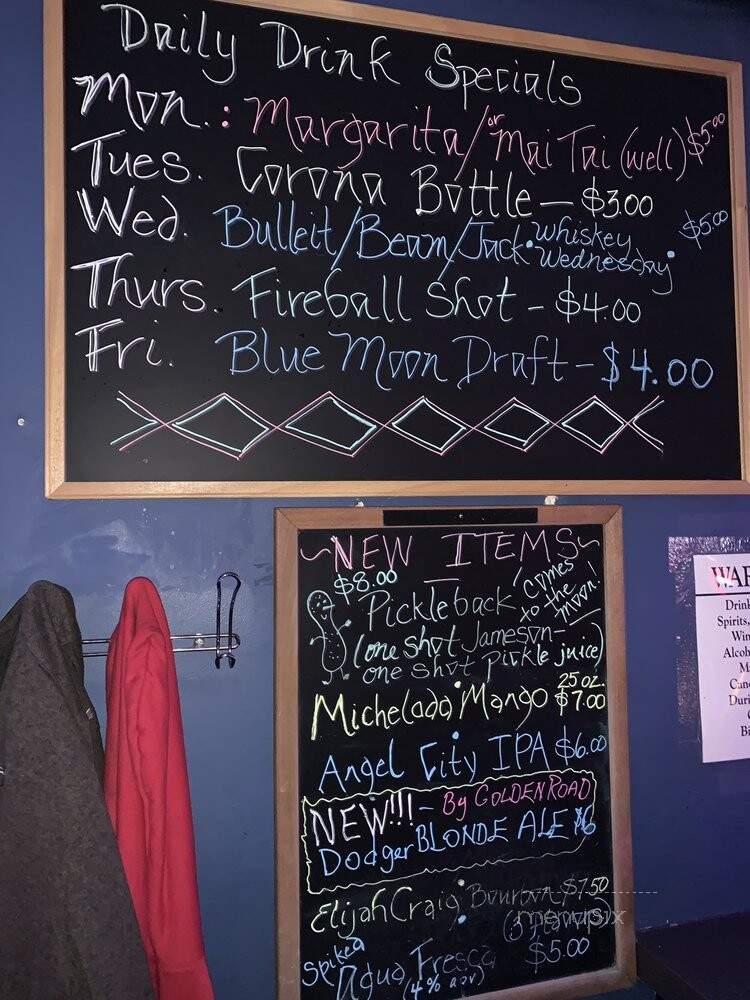 Daily Drink Specials
Mon.: Margarita/or Mai Tai (well) $5.00
Tues. Corona Bottle — $3.00
Wed. Bulleit/Beam/Jack • Whiskey Wednesday • $5.00
Thurs. Fireball Shot - $4.00
Fri. Blue Moon Draft - $4.00
~NEW ITEMS~
$8.00
Pickleback
Comes to the moon!
(one shot Jameson-
one shot pickle juice)
25 oz.
Michelada Mango $7.00
Angel City IPA $6.00
NEW!!! - By GOLDEN ROAD
Dodger BLONDE ALE $6
Elijah Craig Bourbon $7.50
Spiked Agua Fresca $5.00
(4% abv)
menupix
WAR
Drin
Spirits,
Win
Alcoh
M
Canc
Duri
Bi